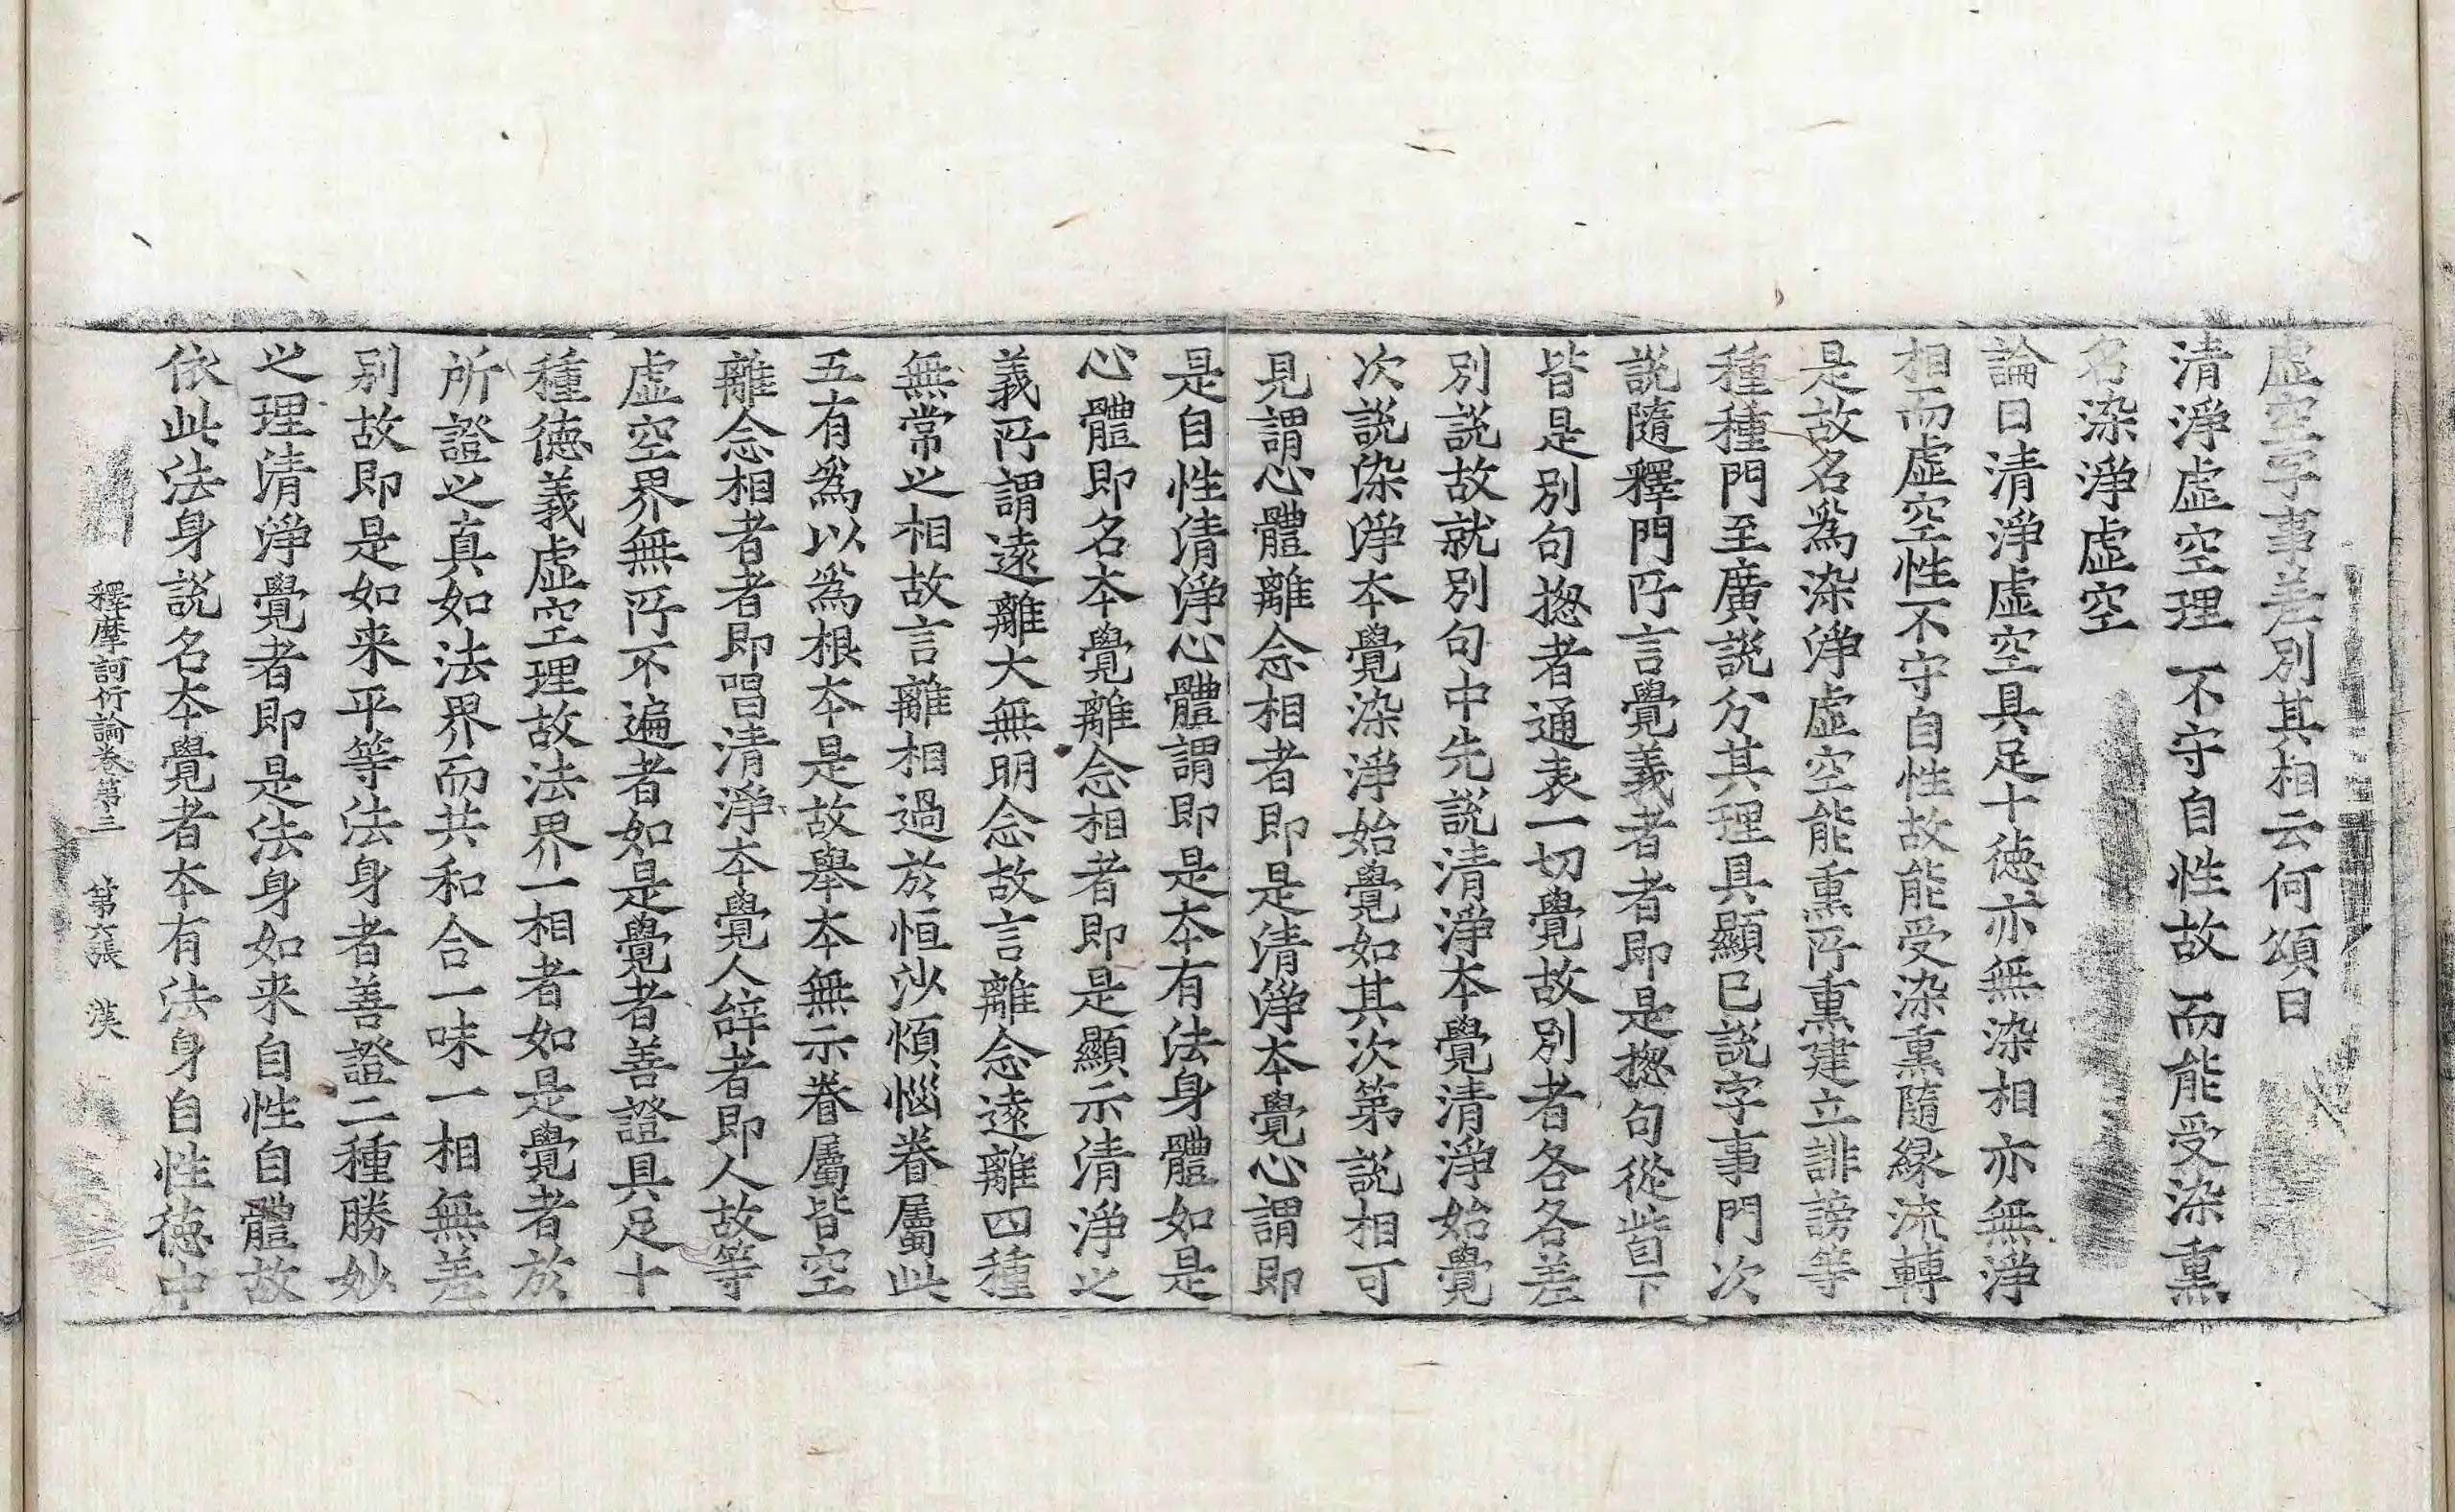 虛空字事差別其相云何頌曰
清淨虛空理　不守自性故　而能受染熏
名染淨虛空
論曰清淨虛空具足十德亦無染相亦無淨
相而虛空性不守自性故能受染熏隨緣流轉
是故名爲染淨虛空能熏所熏建立誹謗等
種種門至廣說分其理具顯已說字事門次
說隨釋門所言覺義者者即是揔句從此已下
皆是別句揔者通表一切覺故別者各各差
別說故就別句中先說清淨本覺清淨始覺
次說染淨本覺染淨始覺如其次第說相可
見謂心體離念相者即是清淨本覺心謂即
是自性清淨心體謂即是本有法身體如是
心體即名本覺離念相者即是顯示清淨之
義所謂遠離大無明念故言離念遠離四種
無常之相故言離相過於恒沙煩惱眷屬此
五有爲以爲根本是故舉本無示眷屬皆空
離念相者者即呂清淨本覺人辞者即人故等
虛空界無所不遍者如是覺者善證具足十
種德義虛空理故法界一相者如是覺者於
所證之真如法界而共和合一味一相無差
別故即是如来平等法身者善證二種勝妙
之理清淨覺者即是法身如来自性自體故
依此法身說名本覺者本有法身自性德中
釋摩訶衍論卷第三　第六張　漢